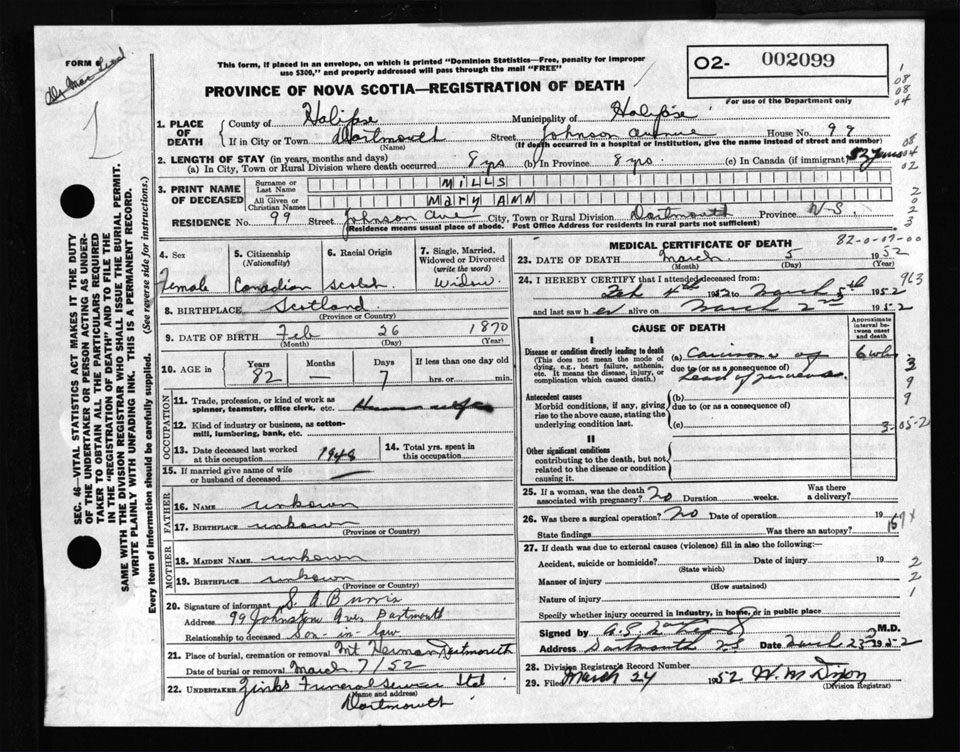 FORM
This form, if placed in an envelope, on which is printed "Dominion Statistics—Free, penalty for improper
use $300," and properly addressed will pass through the mail "FREE"
O2- 002099
PROVINCE OF NOVA SCOTIA—REGISTRATION OF DEATH
For use of the Department only
1. PLACE OF DEATH
County of Halifax Municipality of Halifax
If in City or Town Dartmouth Street Johnson Avenue House No. 99
(Name) (If death occurred in a hospital or institution, give the name instead of street and number)
2. LENGTH OF STAY (in years, months and days)
(a) In City, Town or Rural Division where death occurred 8 yrs (b) In Province 8 yrs. (c) In Canada (if immigrant) 52 years
3. PRINT NAME OF DECEASED
Surname or Last Name MILLS
All Given or Christian Names Mary ANN
RESIDENCE No. 99 Street Johnson Ave City, Town or Rural Division Dartmouth Province N-S.
(Residence means usual place of abode. Post Office Address for residents in rural parts not sufficient)
4. Sex Female
5. Citizenship (Nationality) Canadian
6. Racial Origin Scotish
7. Single, Married, Widowed or Divorced (write the word) Widow
8. BIRTHPLACE Scotland
(Province or Country)
9. DATE OF BIRTH Feb 26 1870
(Month) (Day) (Year)
10. AGE in Years 82 Months — Days 7 If less than one day old
hrs. or min.
OCCUPATION
11. Trade, profession, or kind of work as
spinner, teamster, office clerk, etc.
12. Kind of industry or business, as cotton-
mill, lumbering, bank, etc.
13. Date deceased last worked
at this occupation 1948
14. Total yrs. spent in
this occupation
15. If married give name of wife
or husband of deceased
FATHER
16. Name unkown
17. Birthplace unkown
(Province or Country)
MOTHER
18. Maiden Name unkown
19. Birthplace unkown
(Province or Country)
20. Signature of informant S. A
Address 99 Johnston Ave Dartmouth
Relationship to deceased Son-in-law
21. Place of burial, cremation or removal Mt Herman Dartmouth
Date of burial or removal March 7/52
22. UNDERTAKER Zinks Funeral Service Ltd
(Name and address)
Dartmouth
MEDICAL CERTIFICATE OF DEATH 82-0-07-00
23. DATE OF DEATH March 5 1952
(Month) (Day) (Year)
24. I HEREBY CERTIFY that I attended deceased from: 963
Feb 4th 1952 to March 5th 1952
and last saw her alive on March 2nd 1952
CAUSE OF DEATH
Approximate interval between onset and death
I
Disease or condition directly leading to death
(This does not mean the mode of
dying, e.g., heart failure, asthenia,
etc. It means the disease, injury, or
complication which caused death.)
(a) Carcinoma of 6 wks
due to (or as a consequence of)
head of pancreas.
Antecedent causes
Morbid conditions, if any, giving
rise to the above cause, stating the
underlying condition last.
(b)
due to (or as a consequence of)
(c)
3-05-2
II
Other significant conditions
contributing to the death, but not
related to the disease or condition
causing it.
25. If a woman, was the death
associated with pregnancy? No Duration weeks. Was there
a delivery?
26. Was there a surgical operation? No Date of operation 19
State findings Was there an autopsy?
27. If death was due to external causes (violence) fill in also the following:—
Accident, suicide or homicide? Date of injury 19
(State which)
Manner of injury
(How sustained)
Nature of injury
Specify whether injury occurred in industry, in home, or in public place
Signed by M.D.
Address Dartmouth Date March 23rd 1952
28. Division Registrar's Record Number
29. Filed March 24 1952 W. M Dixon
(Division Registrar)
SEC. 46—VITAL STATISTICS ACT MAKES IT THE DUTY
OF THE UNDERTAKER OR PERSON ACTING AS UNDER-
TAKER TO OBTAIN ALL THE PARTICULARS REQUIRED
IN THE "REGISTRATION OF DEATH" AND TO FILE THE
SAME WITH THE DIVISION REGISTRAR WHO SHALL ISSUE THE BURIAL PERMIT.
WRITE PLAINLY WITH UNFADING INK. THIS IS A PERMANENT RECORD.
Every item of information should be carefully supplied. (See reverse side for instructions.)